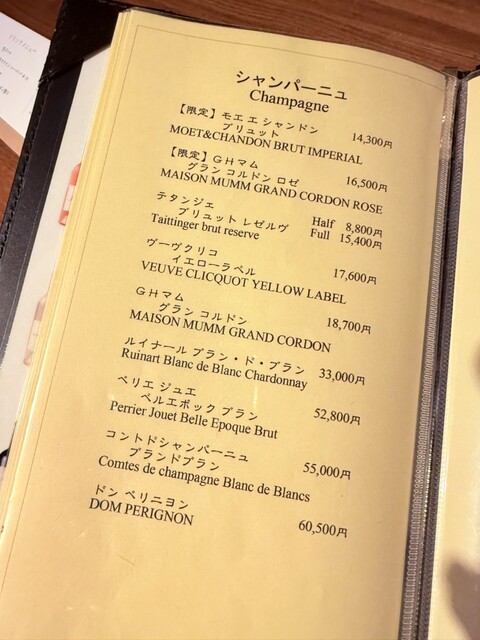 シャンパーニュ
Champagne
【限定】モエ エ シャンドン
ブリュット 14,300円
MOET&CHANDON BRUT IMPERIAL
【限定】GHマム
グラン コルドン ロゼ 16,500円
MAISON MUMM GRAND CORDON ROSE
テタンジェ
ブリュット レゼルヴ Half 8,800円
Taittinger brut reserve Full 15,400円
ヴーヴクリコ
イエローラベル 17,600円
VEUVE CLICQUOT YELLOW LABEL
GHマム
グラン コルドン 18,700円
MAISON MUMM GRAND CORDON
ルイナール ブラン・ド・ブラン 33,000円
Ruinart Blanc de Blanc Chardonnay
ペリエ ジュエ
ベルエポック ブラン 52,800円
Perrier Jouet Belle Epoque Brut
コントドシャンパーニュ
ブランドブラン 55,000円
Comtes de champagne Blanc de Blancs
ドン ペリニヨン
DOM PERIGNON 60,500円